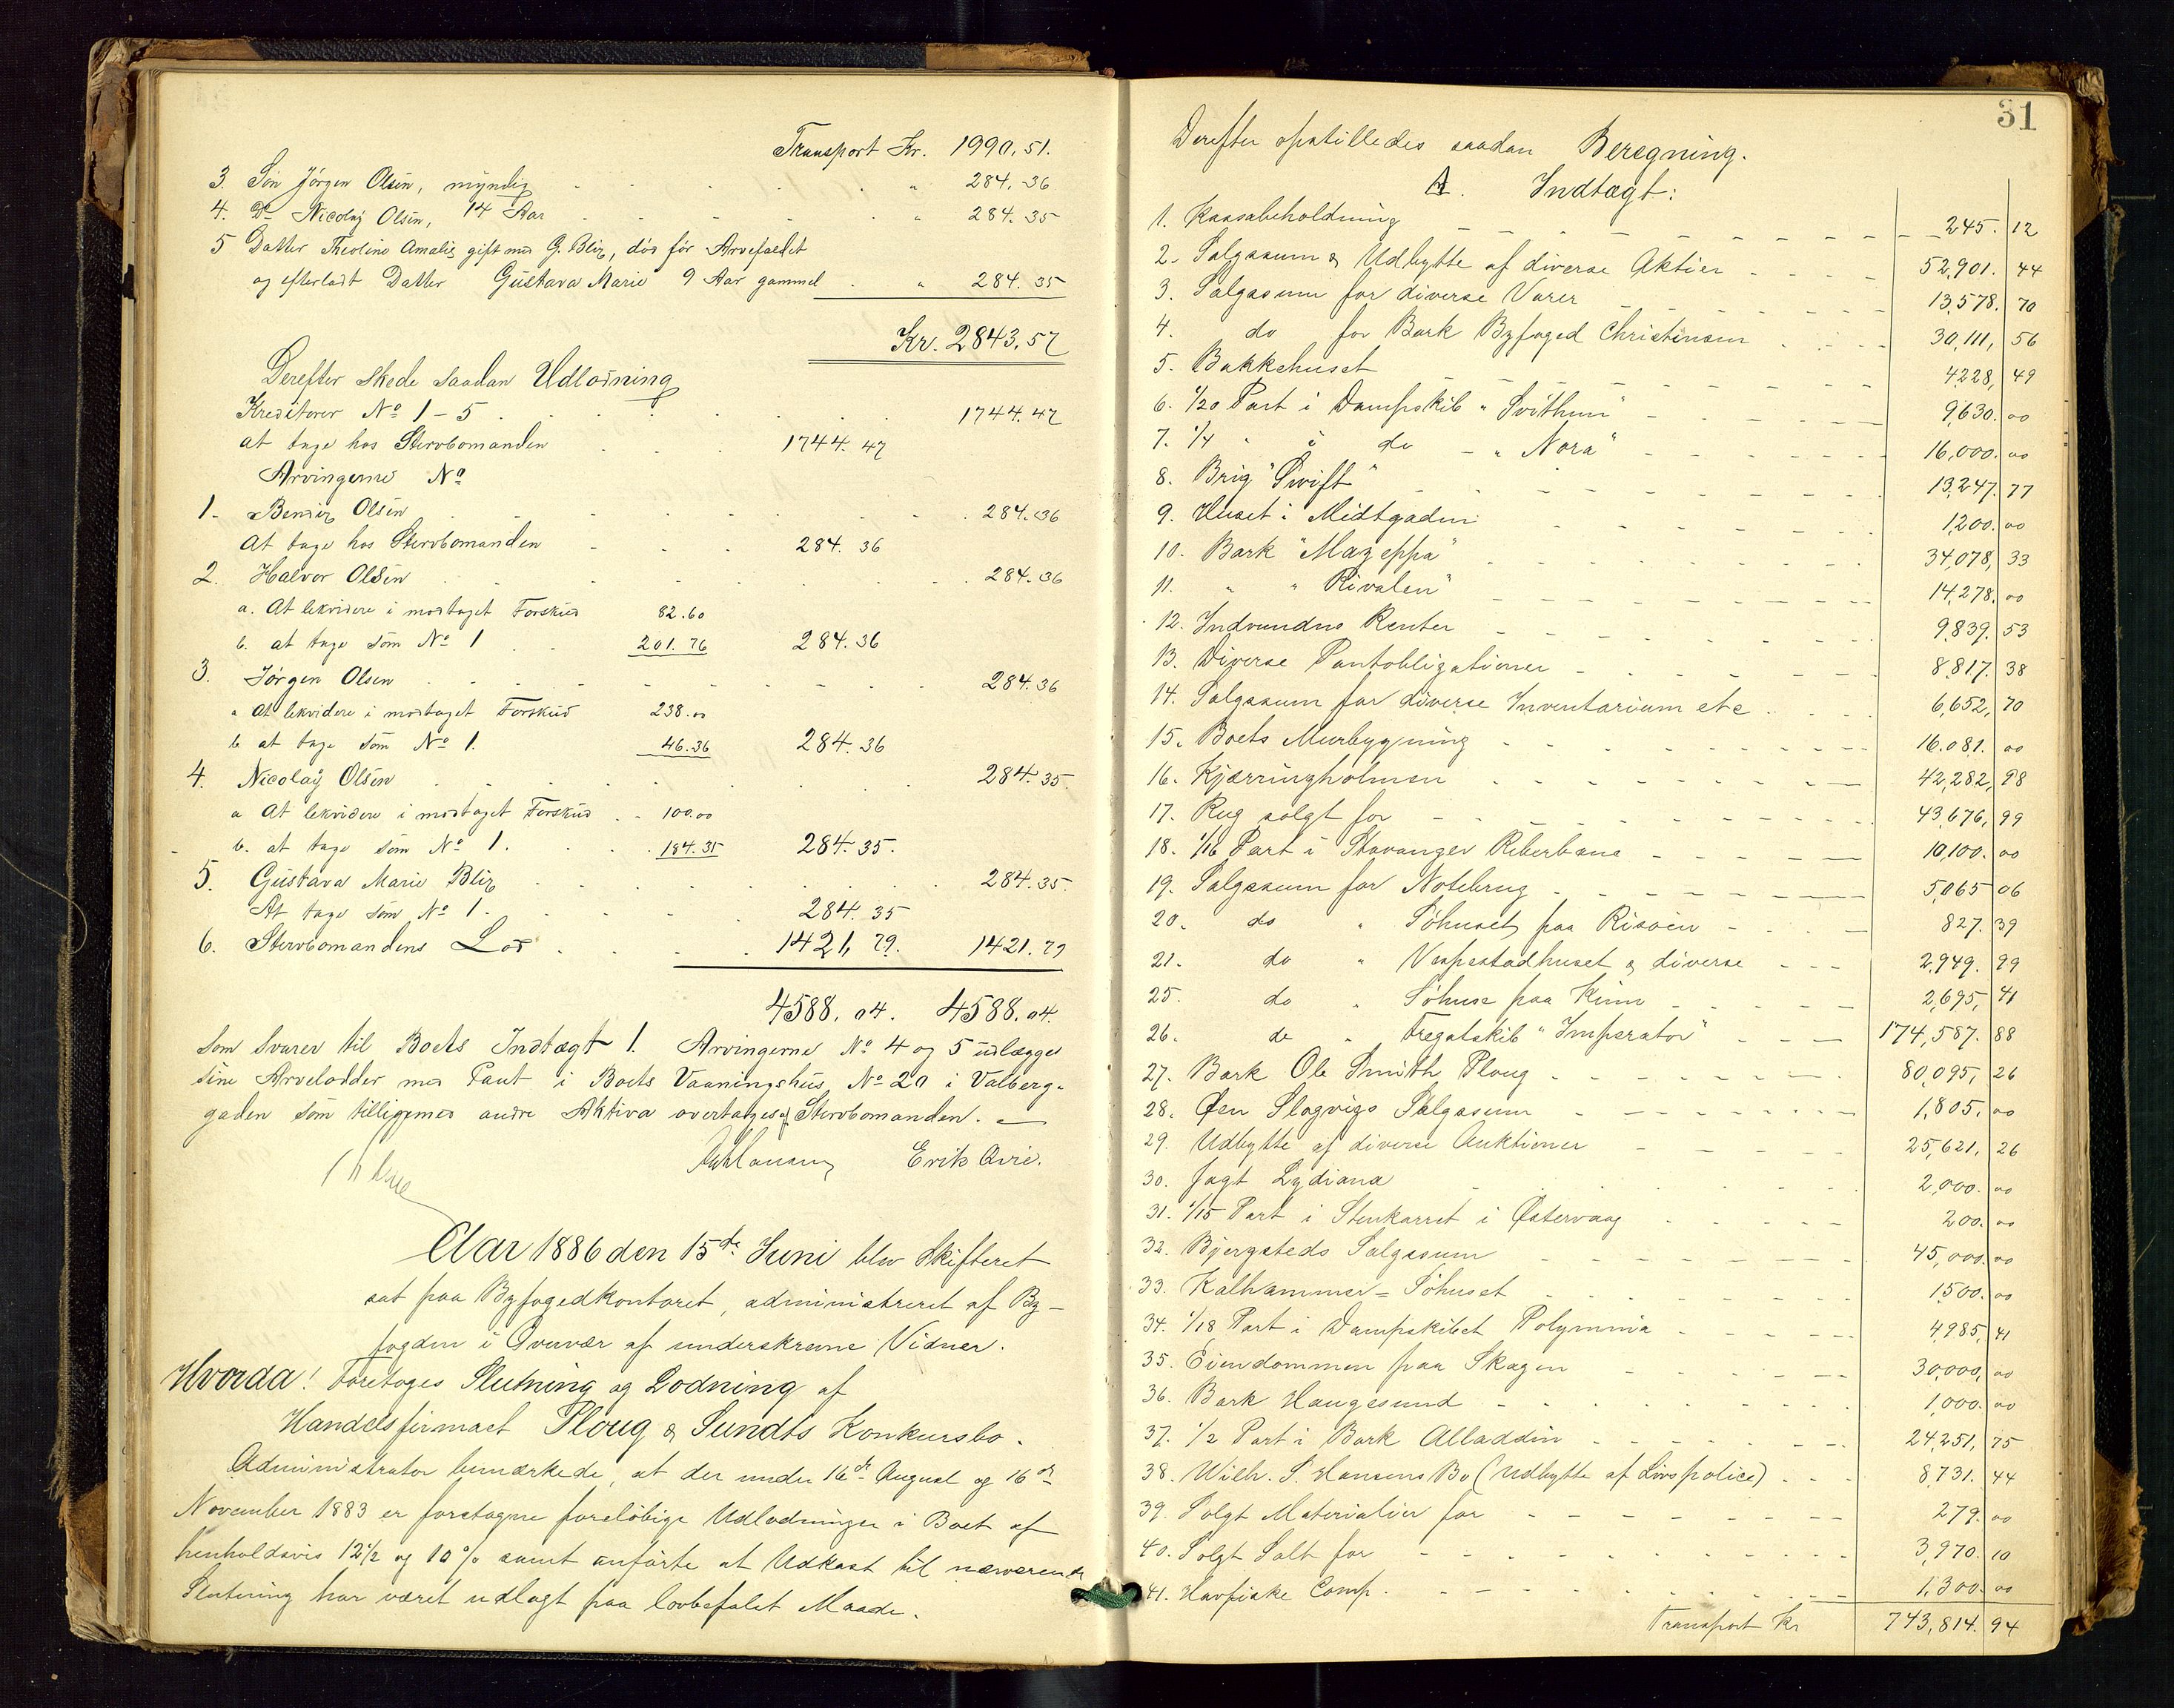 Transport Kr. 1990,51.
3. Søn Jørgen Olsen, myndig " 284.36
4. Do Nicolay Olsen, 14 Aar " 284.35
5 Datter Theoline Amalie gift med G. Blix, død før Arvefaldet
og efterladt Datter Gustava Marie 9 Aar gammel " 284.35
Kr. 2843,57
Derefter skede saadan Udlodning
Kreditorer No 1-5 1744.47
at tage hos Stervbomanden 1744.47
Arvingerne No
1. Olsen 284.36
At tage hos Stervbomanden 284.36
2. Halvor Olsen 284.36
a. At lekvidere i modtaget Forskud 82.60
b. at tage som No 1 201.76 284.36
3. Jørgen Olsen 284.36
a At lekvidere i modtaget Forskud 238.00
b at tage som No 1. 46.36 284.36
4. Nicolay Olsen 284.35.
a At lekvidere i modtaget Forskud 100.00
b. at tage som No 1. 184.35 284.35.
5. Gustava Marie Blix 284.35.
At tage som No 1. 284.35
6. Stervbomandens Lod 1421,79. 1421.79
4588.04. 4588.04.
som svarer til Boets Indtægt 1. Arvingerne No 4 og 5 udlægges
sine Arvelodder med Pant i Boets Vaaningshus No 20 i Valberg-
gaden som tilligemed andre Aktiva overtages af Stervbomanden.
Erik Qvie.
Aar 1886 den 15de Juni blev Skifteret
sat paa Byfogedkontoret, administreret af By-
fogden i Overvær af underskrevne Vidner.
Hvorda! Foretoges Slutning og Lodning af
Handelsfirmaet Ploug & Sundts Konkursbo.
Administrator bemærkede, at der under 16de August og 16de
November 1883 er foretagne foreløbige Udlodninger i Boet af
henholdsvis 12 1/2 og 10% samt anførte at Udkast til nærværende
Slutning har været udlagt paa lovbefalet Maade.
31
Derefter opstilledes saadan Beregning.
A. Indtægt:
1. Kassabeholdning 245.12
2. Salgssum & Udbytte af diverse Aktier 52,901.44
3. Salgssum for diverse Varer 13,578.70
4. do for Bark Byfoged Christensen 30,111,56
5. Bakkehuset 4,228,49
6. 1/20 Part i Dampskib "Svithun" 9,630.00
7. 1/4 " i do "Nora" 16,000.00
8. Brig "Swift" 13,247.77
9. Huset i Midtgaden 1,200.00
10. Bark "Mazeppa" 34,078,33
11. " "Rivalen" 14,278.00
12. Indvundne Renter 9,839.53
13. Diverse Pantobligationer 8,817.38
14. Salgssum for diverse Inventarium etc. 6,652,70
15. Boets Murbygning 16.081.00
16. Kjærringholmen 42,282,98
17. Rug solgt for 43,676,99
18. 1/16 Part i Stavanger Reberbane 10,100.00
19. Salgssum for Notebrug 5,065 06
20. do " Søhuset paa Risøen 827.39
21. do " Vespestadhuset & diverse 2,949.99
25. do " Søhuse paa Kinn 2,695,41
26. do " Fregatskib "Imperator" 174,587.88
27. Bark Ole Smith Ploug 80,095,26
28. Øen Slogvigs Salgssum 1,805.00
29. Udbytte af diverse Auktioner 25,621,26
30. Jagt Lydiana 2,000.00
31. 1/15 Part i Stenkarret i Østervaag 200.00
32. Bjergsteds Salgssum 45,000.00
33. Kalhammer=Søhuset 1,500.00
34. 1/18 Part i Dampskibet Polymnia 4,985,41
35. Eiendommen paa Skagen 30,000,00
36. Bark Haugesund 1,000.00
37. 1/2 Part i Bark Alladdin 24,251,75
38. Wilh. S. Hansens Bo (Udbytte af Livspolice) 8,731.44
39. Solgt Materialier for 279.00
40. Solgt Salt for 3,970.10
41. Havfiske Comp. 1,300.00
Transport Kr 743,814.94